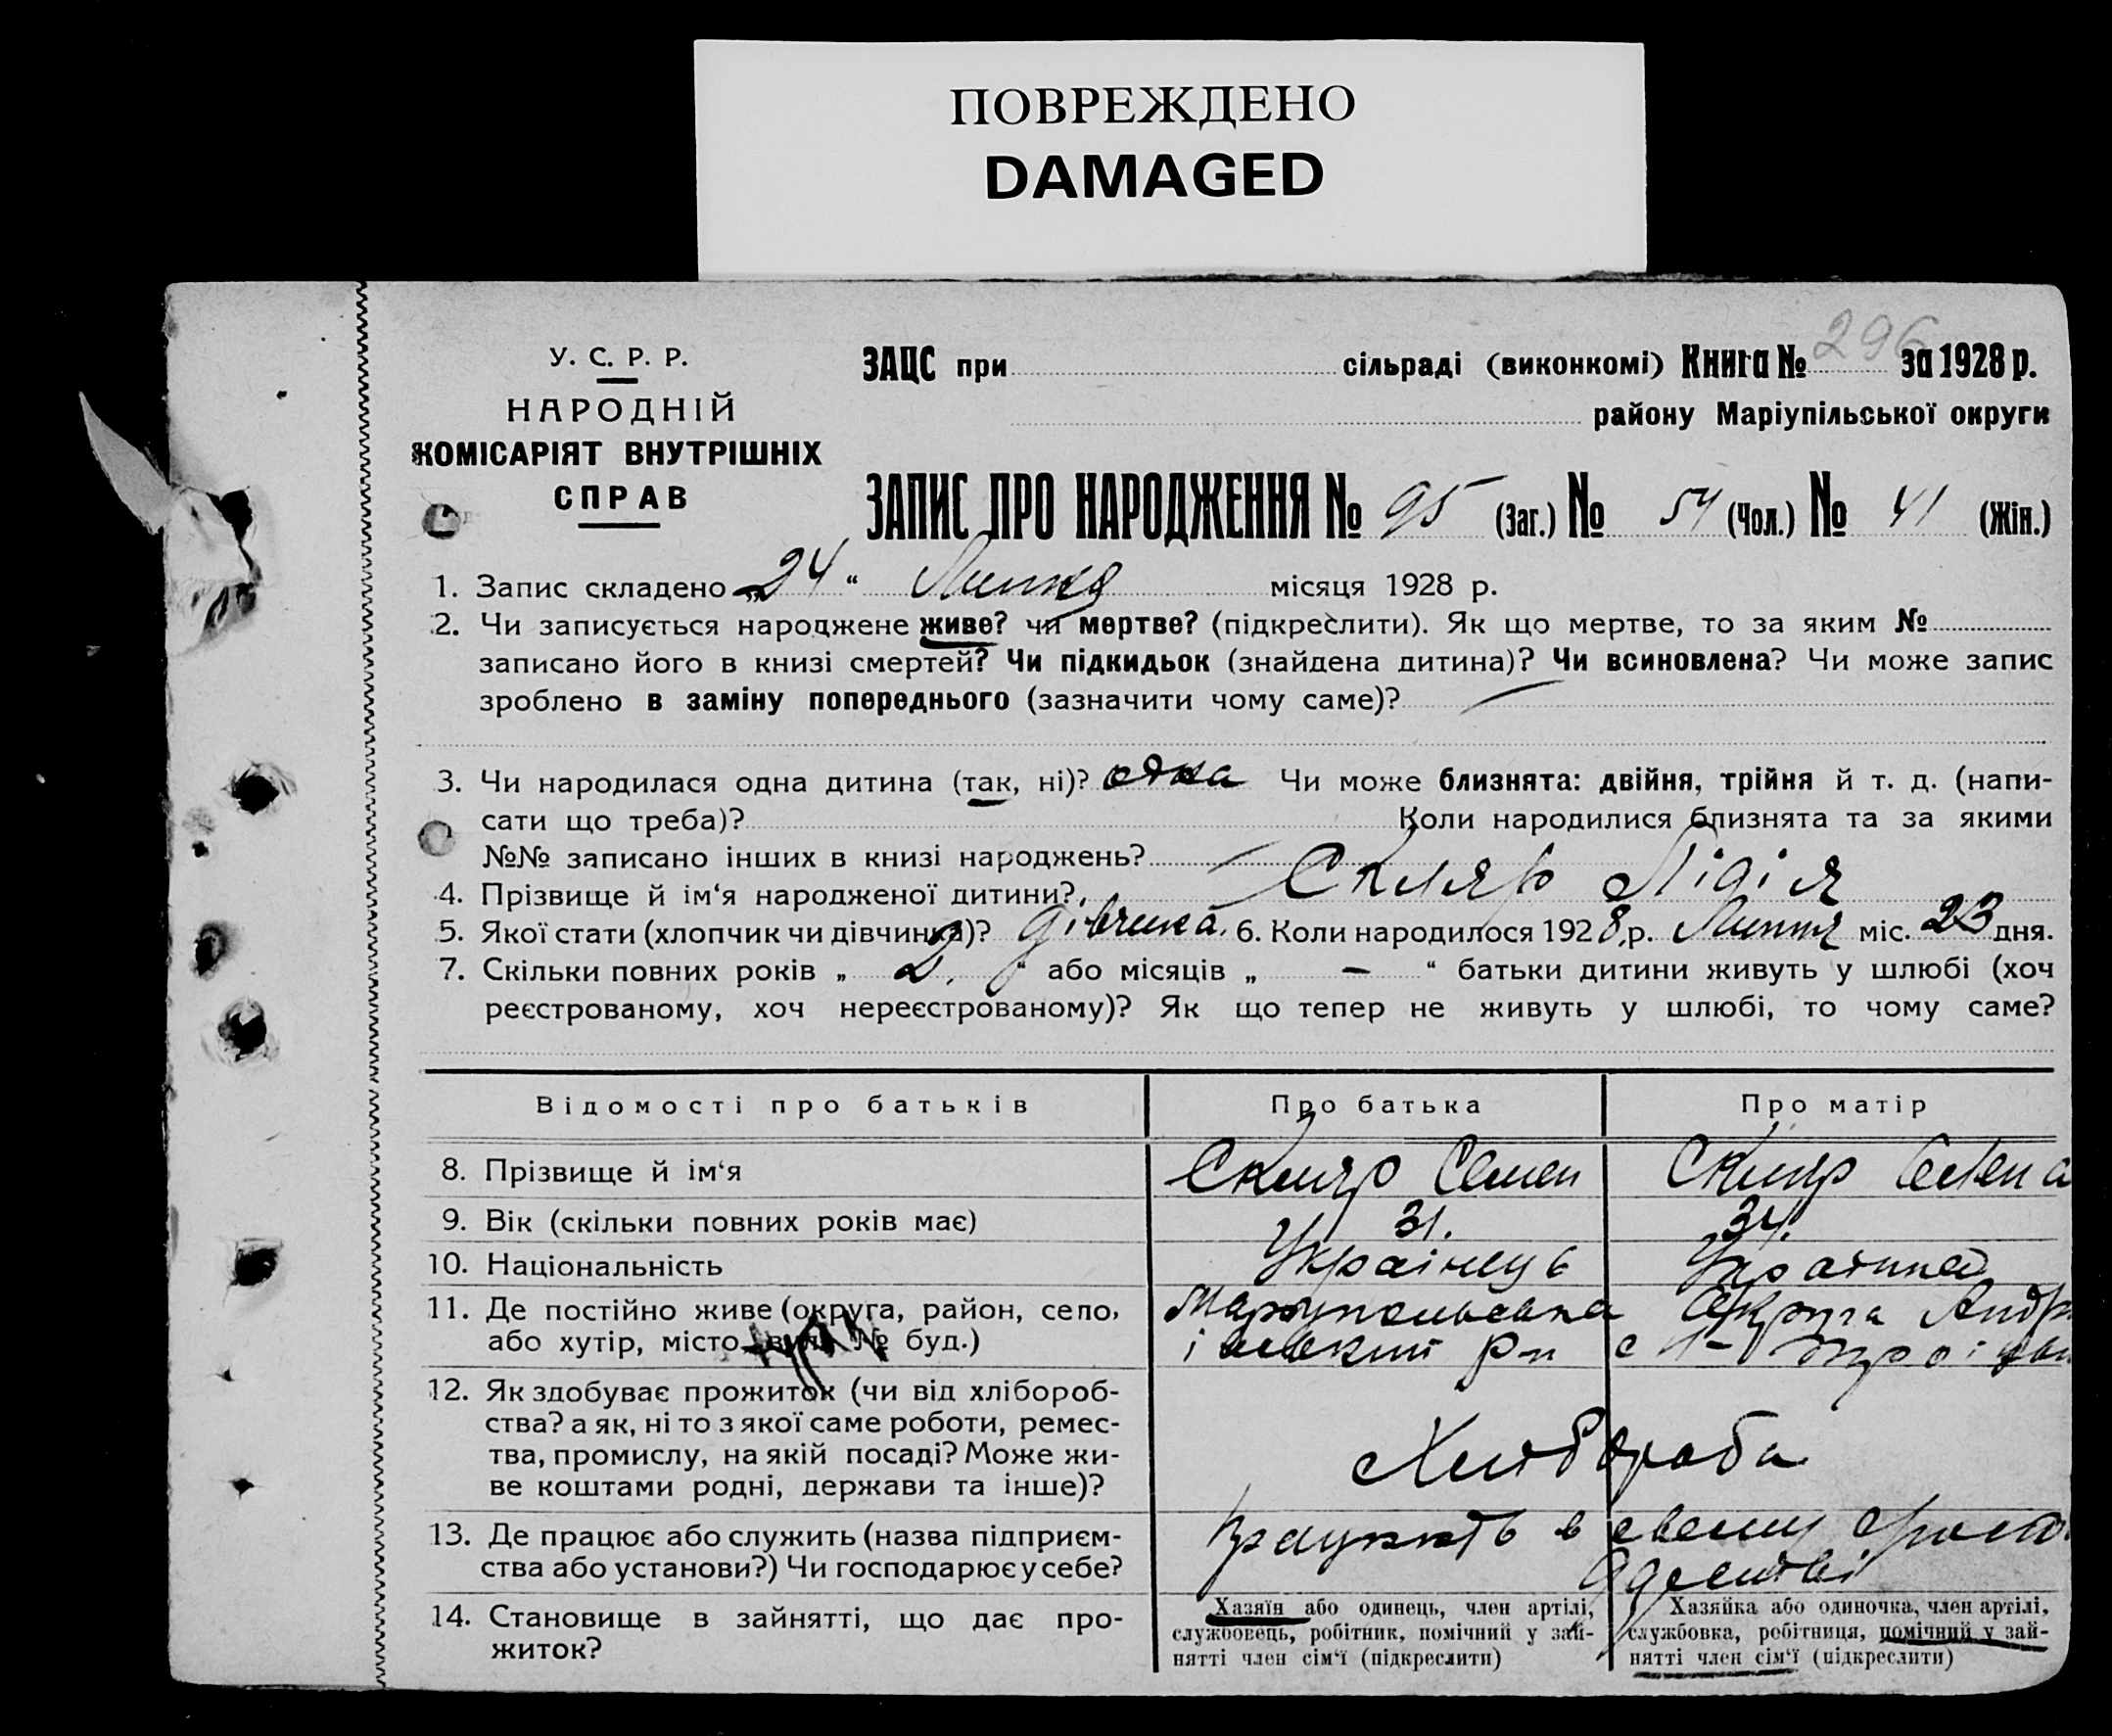 ПОВРЕЖДЕНО
DAMAGED
296
У. С. Р. Р.
НАРОДНІЙ
КОМІСАРІЯТ ВНУТРІШНІХ
СПРАВ
ЗАЦС при сільраді (виконкомі) Книга № за 1928 р.
району Маріупільської округи
ЗАПИС ПРО НАРОДЖЕННЯ № 95 (Заг.) № 54 (Чол.) № 41 (Жін.)
1. Запис складено „24“ Липня місяця 1928 р.
2. Чи записується народжене живе? чи мертве? (підкреслити). Як що мертве, то за яким №
записано його в книзі смертей? Чи підкидьок (знайдена дитина)? Чи всиновлена? Чи може запис
зроблено в заміну попереднього (зазначити чому саме)?
3. Чи народилася одна дитина (так, ні)? одна Чи може близнята: двійня, трійня й т. д. (напи-
сати що треба)? Коли народилися близнята та за якими
№№ записано інших в книзі народжень?
4. Прізвище й ім‘я народженої дитини? Скляр Лідія
5. Якої стати (хлопчик чи дівчинка)? дівчинка. 6. Коли народилося 1928 р. Липня міс. 23 дня.
7. Скільки повних років „ 2. “ або місяців „ – “ батьки дитини живуть у шлюбі (хоч
реєстрованому, хоч нереєстрованому)? Як що тепер не живуть у шлюбі, то чому саме?
Відомості про батьків Про батька Про матір
8. Прізвище й ім‘я Скляр Семен Скляр
9. Вік (скільки повних років має) 31. 34.
10. Національність Українець
11. Де постійно живе (округа, район, село, Округа Андр
або хутір, місто, вул. № буд.) івський р-н с
12. Як здобуває прожиток (чи від хлібороб-
ства? а як, ні то з якої саме роботи, ремес-
тва, промислу, на якій посаді? Може жи-
ве коштами родні, держави та інше)?
Хліборобa
13. Де працює або служить (назва підприєм- в своему
ства або установи?) Чи господарює у себе?
14. Становище в зайнятті, що дає про-
житок?
Хазяїн або одинець, член артілі,
службовець, робітник, помічний у зай-
нятті член сім‘ї (підкреслити)
Хазяйка або одиночка, член артілі,
службовка, робітниця, помічний у зай-
нятті член сім‘ї (підкреслити)